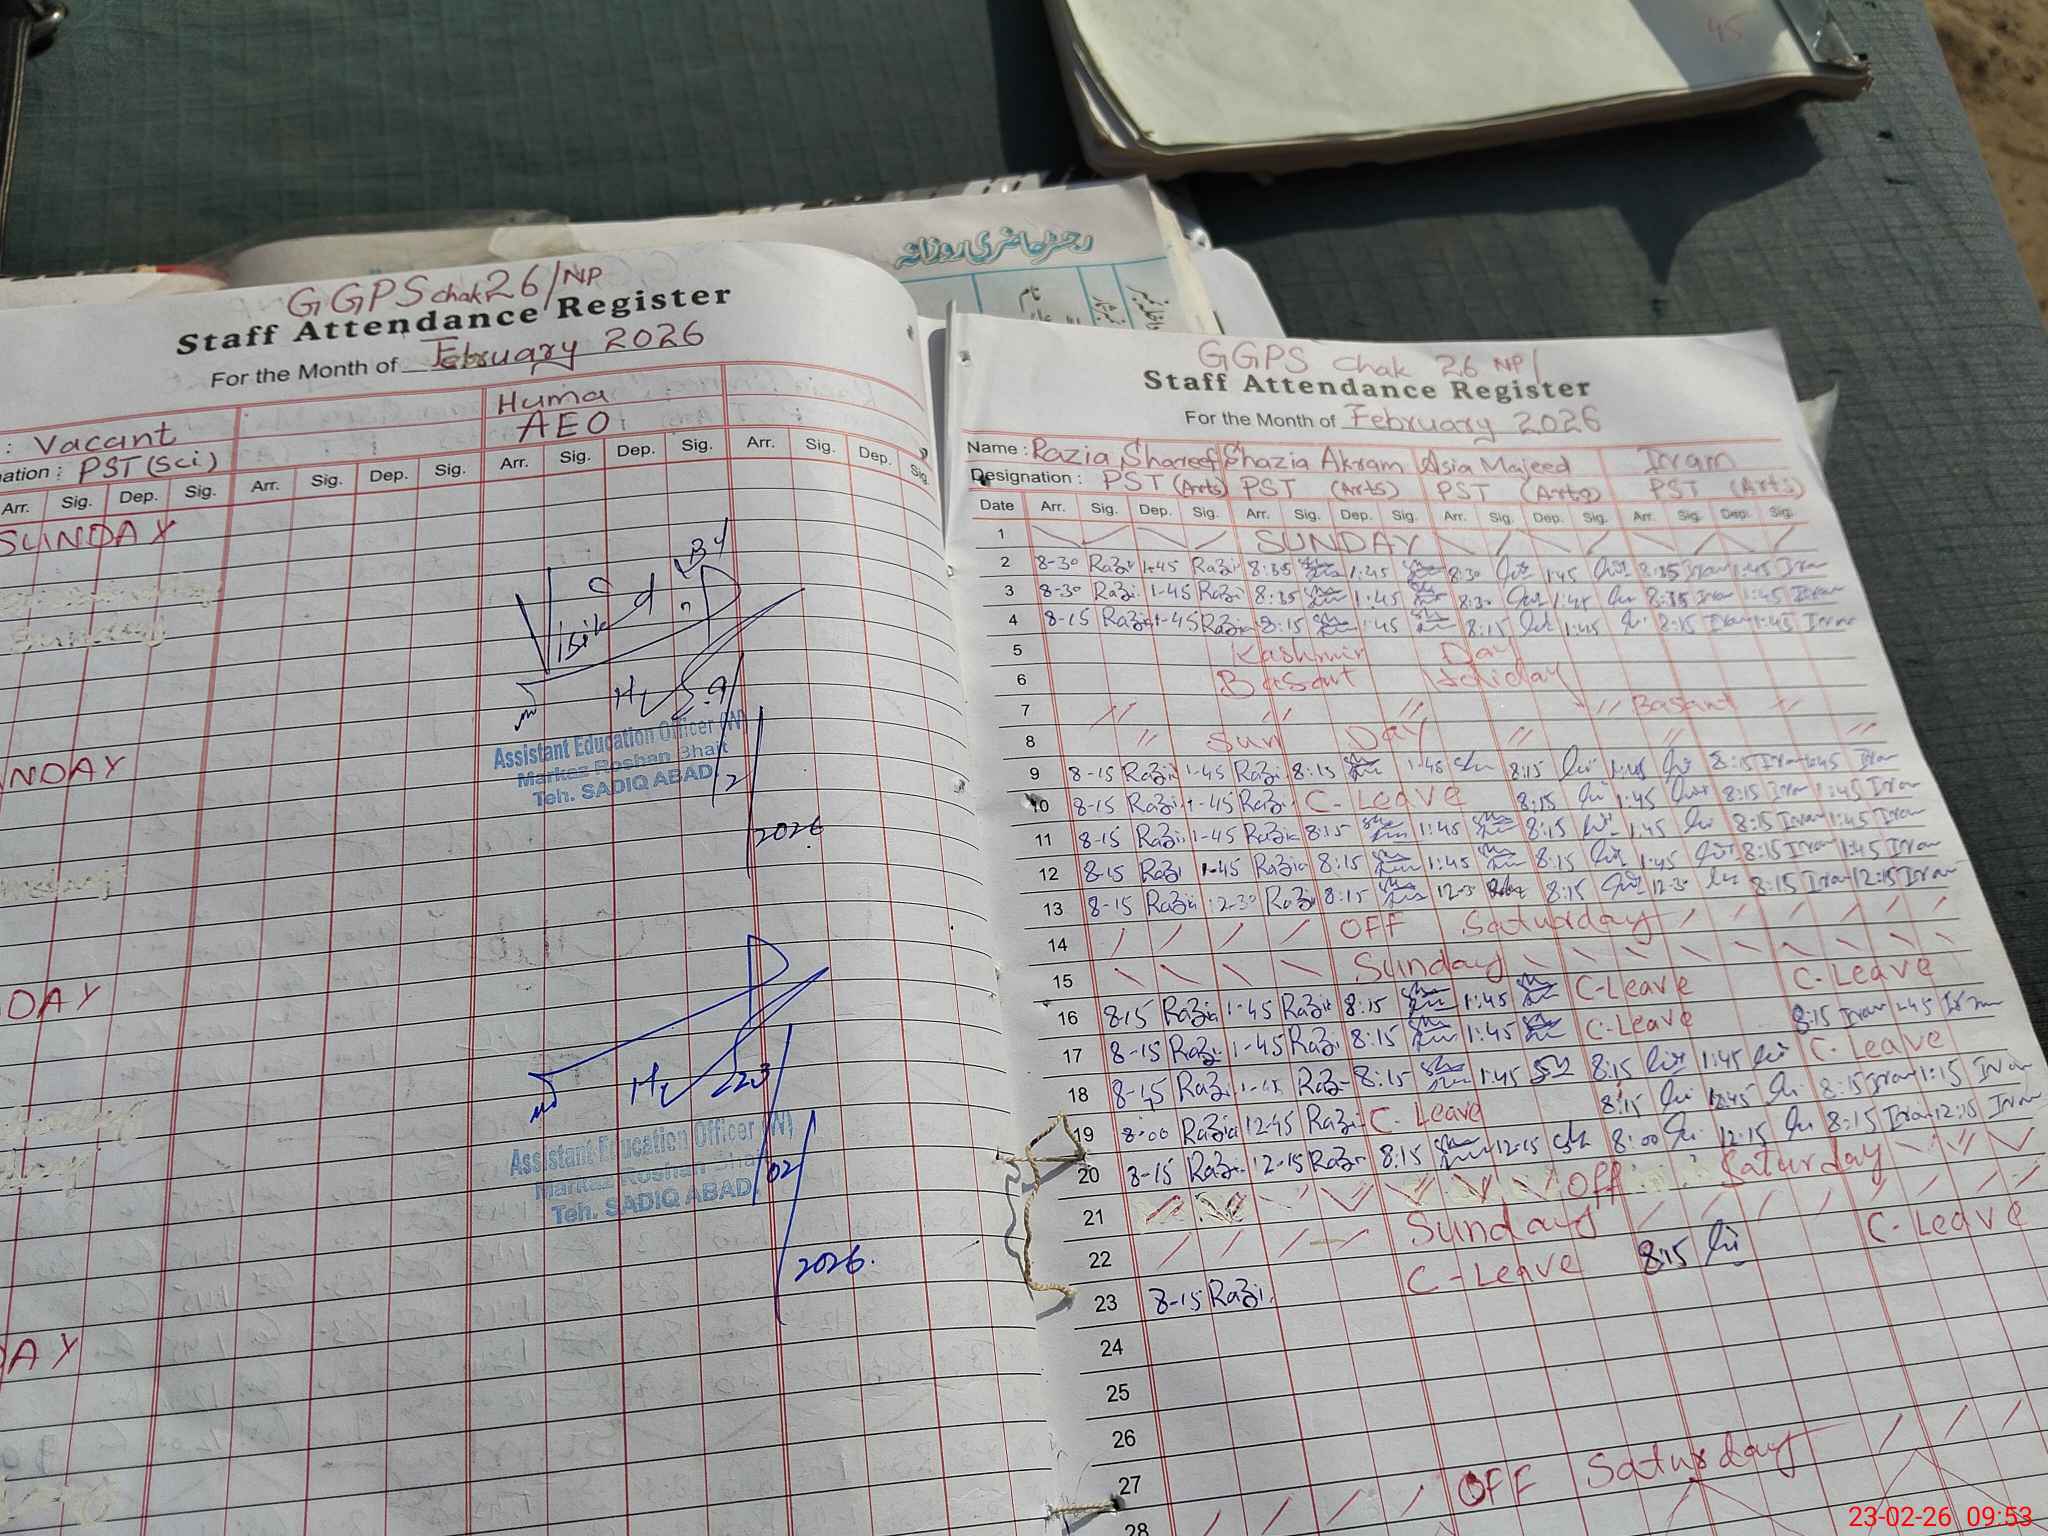 45
رجسٹر حاضری روزانہ
نام
GGPS chak 26/NP
Staff Attendance Register
For the Month of February 2026
: Vacant Huma
nation : PST (Sci) AEO
Arr. Sig. Dep. Sig. Arr. Sig. Dep. Sig. Arr. Sig. Dep. Sig. Arr. Sig. Dep. Sig.
SUNDAY
Visited
9/2/2026
Assistant Education Officer (W)
Markaz Roshan Bhait
Teh. SADIQ ABAD
NDAY
DAY
23/02/2026.
Assistant Education Officer (W)
Markaz Roshan Bha
Teh. SADIQ ABAD
DAY
GGPS chak 26 NP/
Staff Attendance Register
For the Month of February 2026
Name : Razia Shareef Shazia Akram Asia Majeed Iram
Designation : PST (Arts) PST (Arts) PST (Arts) PST (Arts)
Date Arr. Sig. Dep. Sig. Arr. Sig. Dep. Sig. Arr. Sig. Dep. Sig. Arr. Sig. Dep. Sig.
1 SUNDAY
2 8-30 Razi 1-45 Razi 8:35 1:45 8:30 1:45 8:35 Iram 1:45 Iram
3 8-30 Razi 1-45 Razi 8:35 1:45 8:30 1:45 8:35 Iram 1:45 Iram
4 8-15 Razi 1-45 Razia 8:15 1:45 8:15 1:45 8:15 Iram 1:45 Iram
5 Kashmir Day
6 Basant Holiday
7 // // // // Basant //
8 // Sun Day // // //
9 8-15 Razi 1-45 Razi 8:15 1:45 8:15 1:45 8:15 Iram 1:45 Iram
10 8-15 Razi 1-45 Razi C-Leave 8:15 1:45 8:15 Iram 1:45 Iram
11 8-15 Razi 1-45 Razia 8:15 1:45 8:15 1:45 8:15 Iram 1:45 Iram
12 8-15 Razi 1-45 Razia 8:15 1:45 8:15 1:45 8:15 Iram 1:45 Iram
13 8-15 Razia 12-30 Razi 8:15 12-30 8:15 12-30 8:15 Iram 12:15 Iram
14 OFF Saturday
15 Sunday
16 8-15 Razia 1-45 Razia 8:15 1:45 C-Leave C-Leave
17 8-15 Razi 1-45 Razi 8:15 1:45 C-Leave 8:15 Iram 1-45 Iram
18 8-15 Razi 1-45 Razi 8:15 1:45 8:15 1:45 C-Leave
19 8-00 Razia 12-45 Razi C-Leave 8:15 12:45 8:15 Iram 1:15 Iram
20 8-15 Razi 12-15 Razi 8:15 12-15 8:00 12-15 8:15 Iram 12:15 Iram
21 Off Saturday
22 Sunday
23 8-15 Razi. C-Leave 8:15 C-Leave
24
25
26
27
28 OFF Saturday
23-02-26 09:53